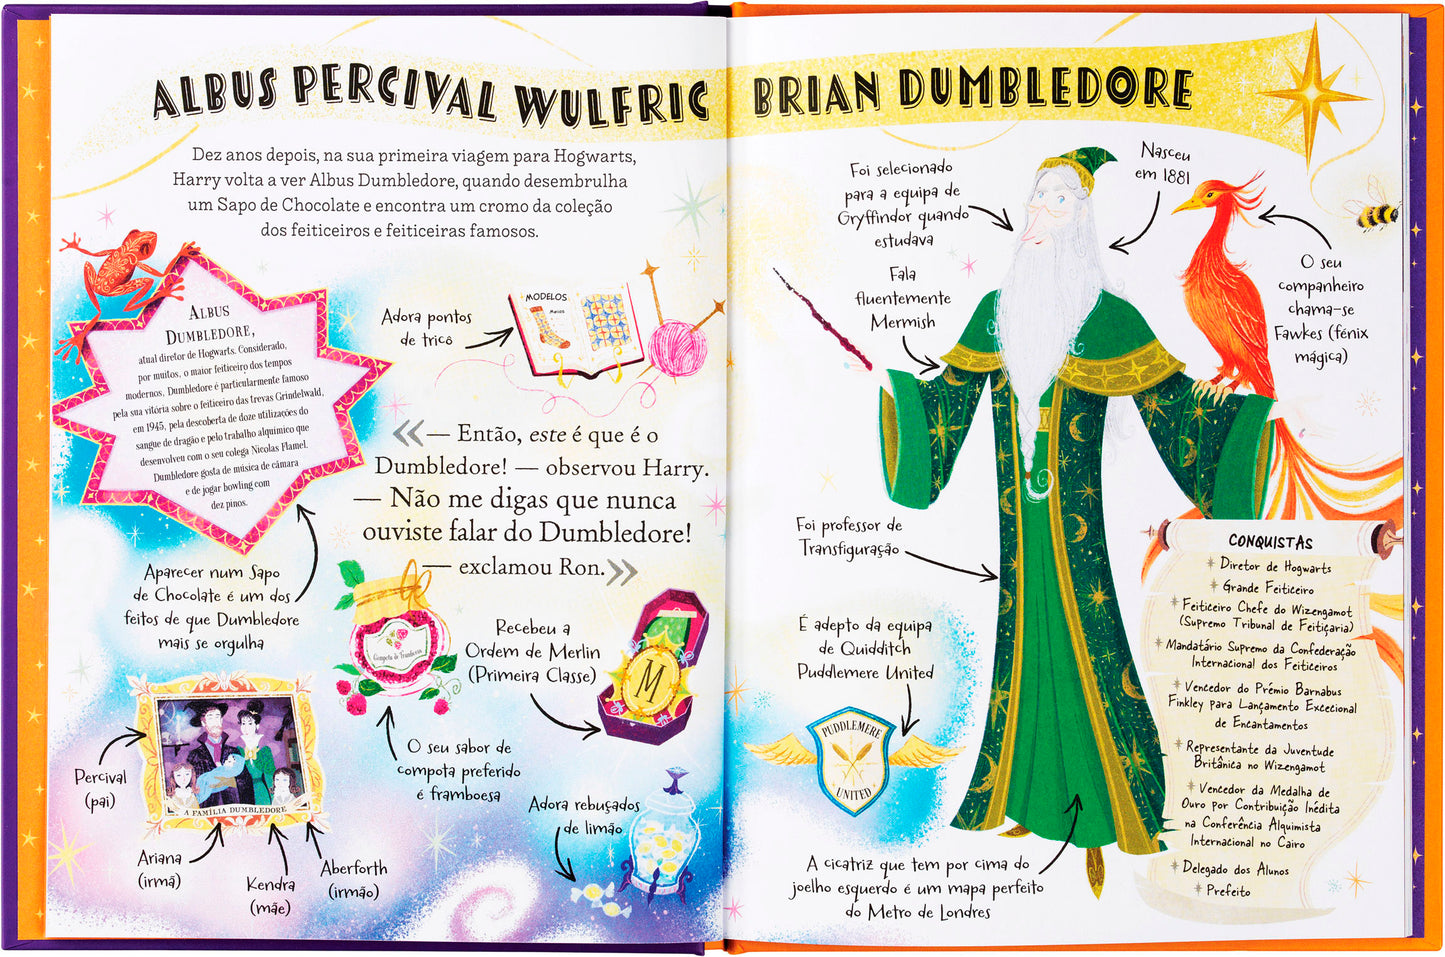 ALBUS PERCIVAL WULFRIC BRIAN DUMBLEDORE
Dez anos depois, na sua primeira viagem para Hogwarts,
Harry volta a ver Albus Dumbledore, quando desembrulha
um Sapo de Chocolate e encontra um cromo da coleção
dos feiticeiros e feiticeiras famosos.
ALBUS
DUMBLEDORE,
atual diretor de Hogwarts. Considerado,
por muitos, o maior feiticeiro dos tempos
modernos, Dumbledore é particularmente famoso
pela sua vitória sobre o feiticeiro das trevas Grindelwald,
em 1945, pela descoberta de doze utilizações do
sangue de dragão e pelo trabalho alquímico que
desenvolveu com o seu colega Nicolas Flamel.
Dumbledore gosta de música de câmara
e de jogar bowling com
dez pinos.
Aparecer num Sapo
de Chocolate é um dos
feitos de que Dumbledore
mais se orgulha
Adora pontos
de tricô
MODELOS
Meias
«— Então, este é que é o
Dumbledore! — observou Harry.
— Não me digas que nunca
ouviste falar do Dumbledore!
— exclamou Ron.»
Compota de Framboesa
O seu sabor de
compota preferido
é framboesa
Recebeu a
Ordem de Merlin
(Primeira Classe)
M
Adora rebuçados
de limão
A FAMÍLIA DUMBLEDORE
Percival
(pai)
Ariana
(irmã)
Kendra
(mãe)
Aberforth
(irmão)
Foi selecionado
para a equipa de
Gryffindor quando
estudava
Nasceu
em 1881
Fala
fluentemente
Mermish
O seu
companheiro
chama-se
Fawkes (fénix
mágica)
Foi professor de
Transfiguração
É adepto da equipa
de Quidditch
Puddlemere United
PUDDLEMERE
UNITED
A cicatriz que tem por cima do
joelho esquerdo é um mapa perfeito
do Metro de Londres
CONQUISTAS
Diretor de Hogwarts
Grande Feiticeiro
Feiticeiro Chefe do Wizengamot
(Supremo Tribunal de Feitiçaria)
Mandatário Supremo da Confederação
Internacional dos Feiticeiros
Vencedor do Prémio Barnabus
Finkley para Lançamento Excecional
de Encantamentos
Representante da Juventude
Britânica no Wizengamot
Vencedor da Medalha de
Ouro por Contribuição Inédita
na Conferência Alquimista
Internacional no Cairo
Delegado dos Alunos
Prefeito